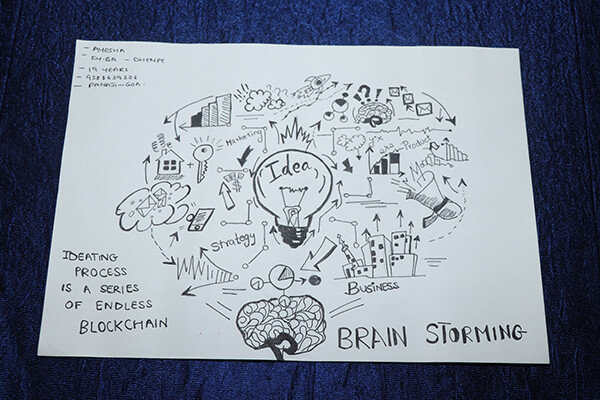 - AYESHA
- F.Y.BA - DHEMPE
- 19 YEARS
- PANAJI - GOA.
Marketing
Idea
Product
Strategy
BUSINESS
IDEATING
PROCESS
IS A SERIES
OF ENDLESS
BLOCKCHAIN
BRAIN STORMING